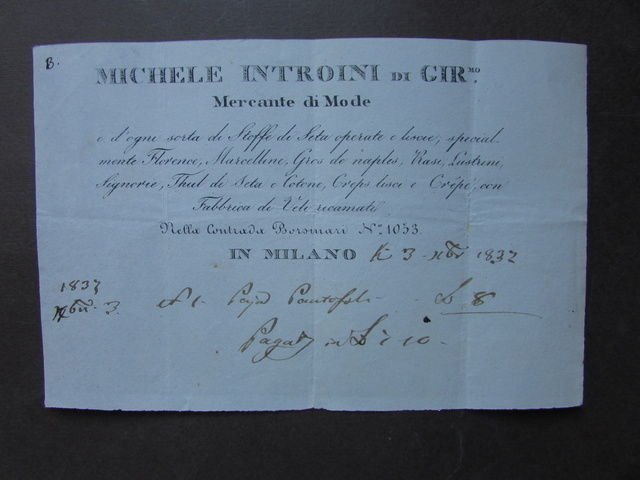 B.
MICHELE INTROINI DI GIR.MO
Mercante di Mode
e d'ogni sorta di Stoffe di Seta operate e liscie, special-
mente Florence, Marcelline, Gros de naples, Rasi, Lustrini,
Signorie, Thul di Seta e Cotone, Creps lisci e Crêpé, con
Fabbrica di Veli ricamati
Nella Contrada Borsinari N.º 1053.
IN MILANO 3 1837
1837
3 N 1 Pajo Pantofole 8
Pagat in 10